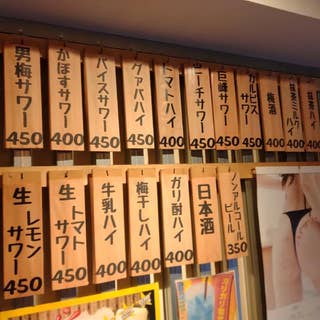 男梅サワー
450
かぼすサワー
400
バイスサワー
450
グァバハイ
450
トマトハイ
400
ピーチサワー
450
巨峰サワー
450
カルピスサワー
450
梅酒
400
抹茶ミルクハイ
400
抹茶ハイ
400
生レモンサワー
450
生トマトサワー
450
牛乳ハイ
400
梅干しハイ
400
ガリ酎ハイ
400
日本酒
ノンアルコールビール
350